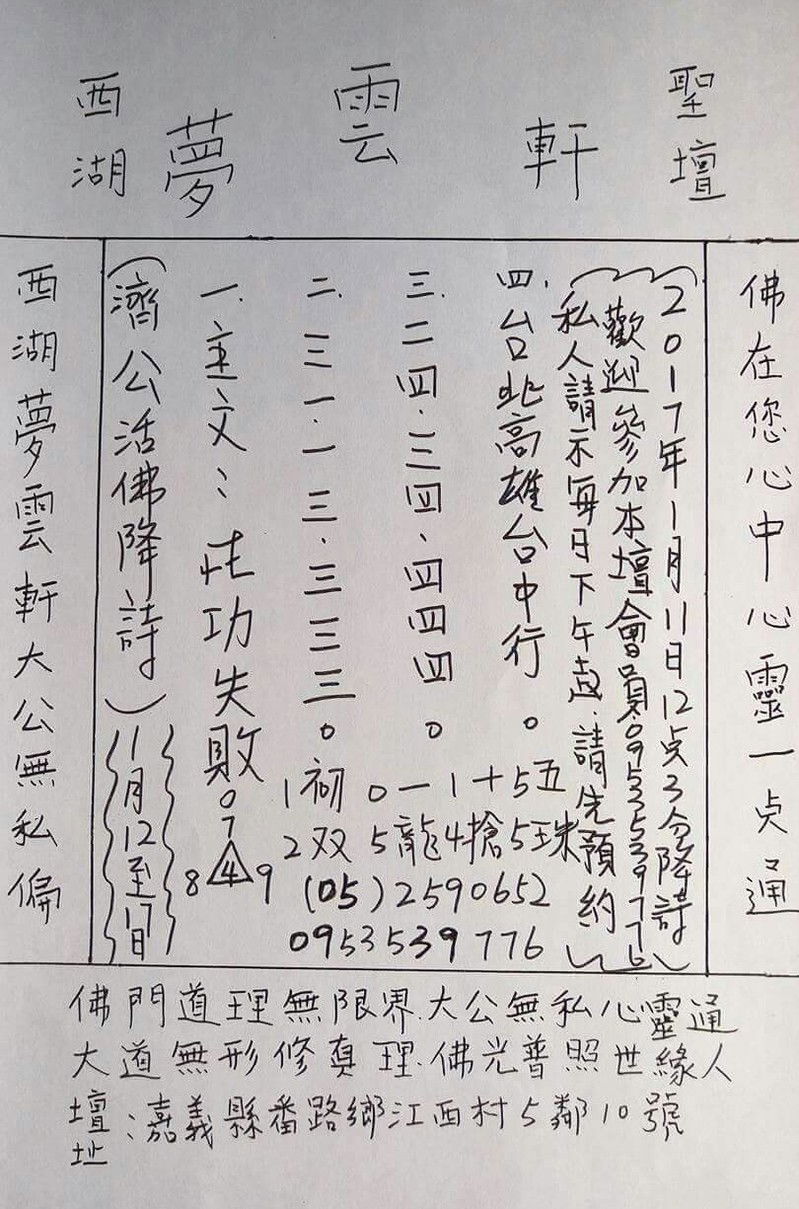 西湖夢雲軒聖壇
西湖夢雲軒大公無私偏
(濟公活佛降詩)11月12至17日
一.主文:性功失敗
0
7
8 4 9
二.三一.一三.三三三。
三.二四.三四.四四四。
四.台北高雄台中行。
1初 0一 1十 5五
2双 5龍 4搶 5珠
(05)2590652
0953539776
(私人請示每日下午起.請先預約)
(歡迎參加本壇會員0953539776)
(2017年1月11日12点3分降詩)
佛在您心中心靈一点通
佛門道理無限界.大公無私心靈通
大道無形修真理.佛光普照世緣人
壇址:嘉義縣番路鄉江西村5鄰10號